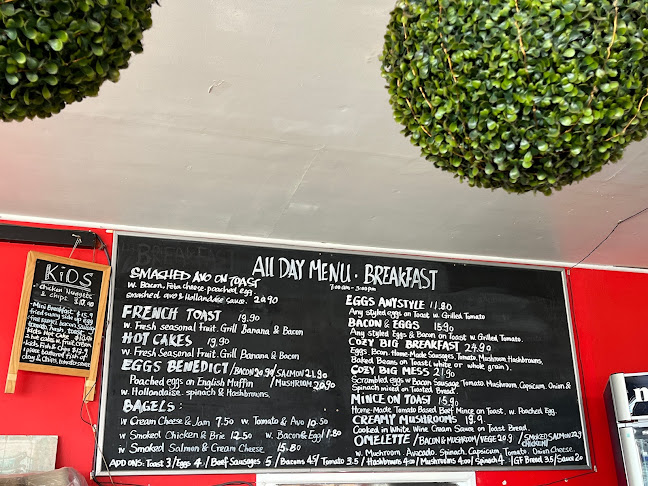 All DAY MENU · BREAKFAST
7:00 am - 3:00 pm
SMASHED AVO ON TOAST
w. Bacon, Feta cheese, poached egg
smashed avo & Hollandaise sauce. 20.90
FRENCH TOAST 19.90
w. Fresh seasonal Fruit. Grill Banana & Bacon
HOT CAKES 19.90
w. Fresh Seasonal Fruit. Grill Banana & Bacon
EGGS BENEDICT / BACON 20.90 / SALMON 21.90
/ MUSHROOM 20.90
Poached eggs on English Muffin
w. Hollandaise. spinach & Hashbrowns.
BAGELS:
w Cream Cheese & Jam 7.50 w Tomato & Avo 10.50
w Smoked Chicken & Brie 12.50 w Bacon & Egg 11.80
w Smoked Salmon & Cream Cheese 15.80
EGGS ANYSTYLE 11.80
Any styled eggs on Toast w. Grilled Tomato
BACON & EGGS 15.90
Any styled Eggs & Bacon on Toast w. Grilled Tomato.
COZY BIG BREAKFAST 24.90
Eggs, Bacon, Home-Made Sausages, Tomato, Mushroom, Hashbrowns,
Baked Beans on Toast (white or whole grain).
COZY BIG MESS 21.90
Scrambled eggs w Bacon Sausage Tomato Mushroom, Capsicum, Onion &
Spinach mixed on Toasted Bread.
MINCE ON TOAST 15.90
Home-Made Tomato Based Beef Mince on Toast. w. Poached Egg.
CREAMY MUSHROOMS 19.9
Cooked in White Wine Cream Sauce on Toast Bread.
OMELETTE / BACON & MUSHROOM / VEGE 20.9 / SMOKED SALMON 22.9
CHICKEN
w. Mushroom. Avocado. Spinach. Capsicum, Tomato, Onion, Cheese
ADD ONS: TOAST 3 / Eggs 4 / Beef Sausages 5 / Bacons 4.5 / Tomato 3.5 / Hashbrowns 4.00 / Mushrooms 4.00 / Spinach 4 / GF Bread 3.5 / Sauce 2.0
KiDS
· Chicken Nuggets
& chips
· Mini Breakfast